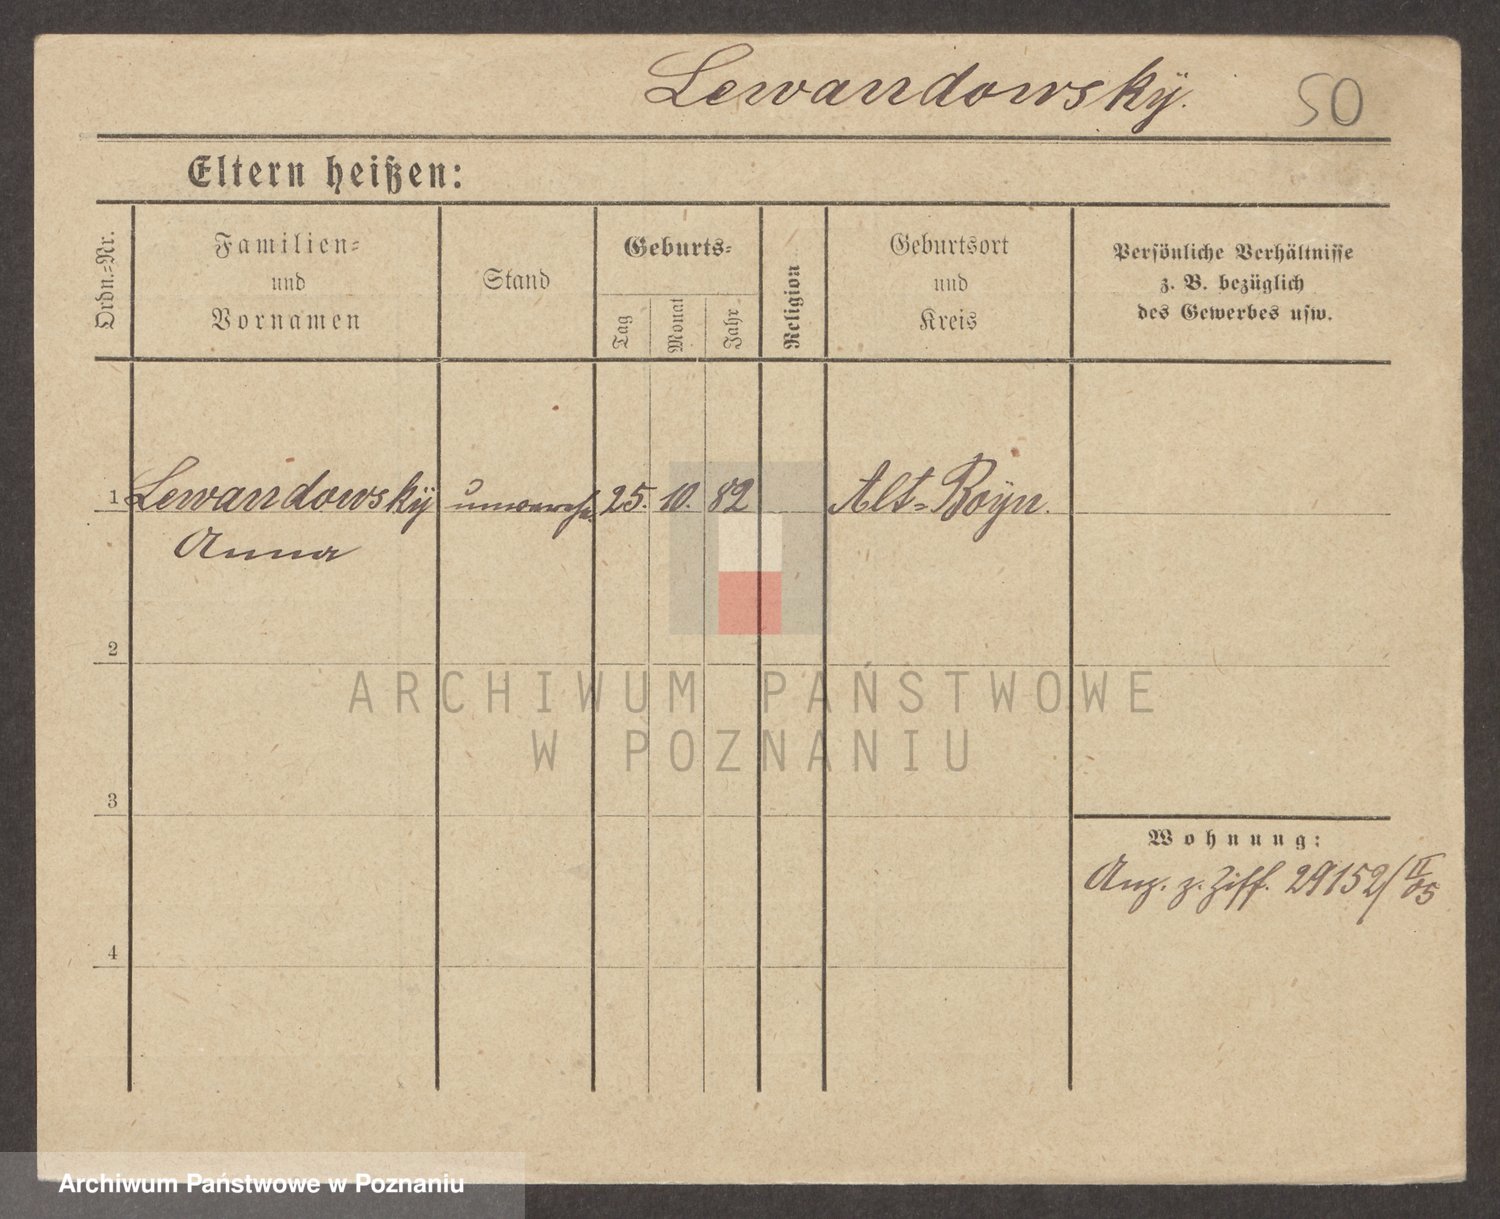 Lewandowsky. 50
Eltern heißen:
Ordn.-Nr.
Familien-
und
Vornamen
Stand
Geburts-
Tag
Monat
Jahr
Religion
Geburtsort
und
Kreis
Persönliche Verhältnisse
z. B. bezüglich
des Gewerbes usw.
1 Lewandowskÿ 25. 10. 82 Alt-Boÿn.
Anna
2
ARCHIWUM PAŃSTWOWE
W POZNANIU
3
Wohnung:
Anz. z. Ziff. 29152/II 05
4
Archiwum Państwowe w Poznaniu